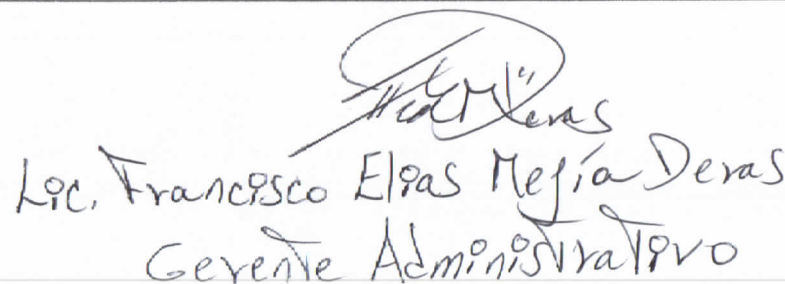 Lic. Francisco Elias Mejía Deras
Gerente Administrativo